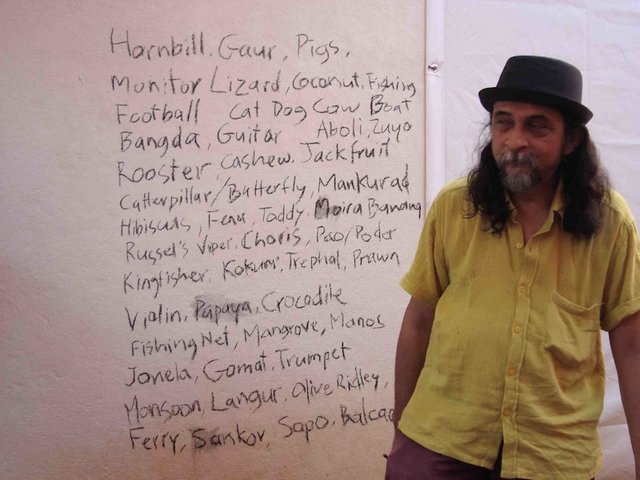 Hornbill, Gaur, Pigs,
Monitor Lizard, Coconut, Fishing
Football Cat Dog Cow Boat
Bangda, Guitar Aboli, Zuyo
Rooster, Cashew, Jackfruit
Catterpillar/Butterfly, Mankurad
Hibiscus, Fenu, Toddy, Moira Banana
Russel's Viper, Choris, Pao/Poder
Kingfisher, Kokum, Trephal, Prawn
Violin, Papaya, Crocodile
Fishing Net, Mangrove, Manos
Jonela, Gomat, Trumpet
Monsoon, Langur, Olive Ridley,
Ferry, Sankov, Sapo, Balcao